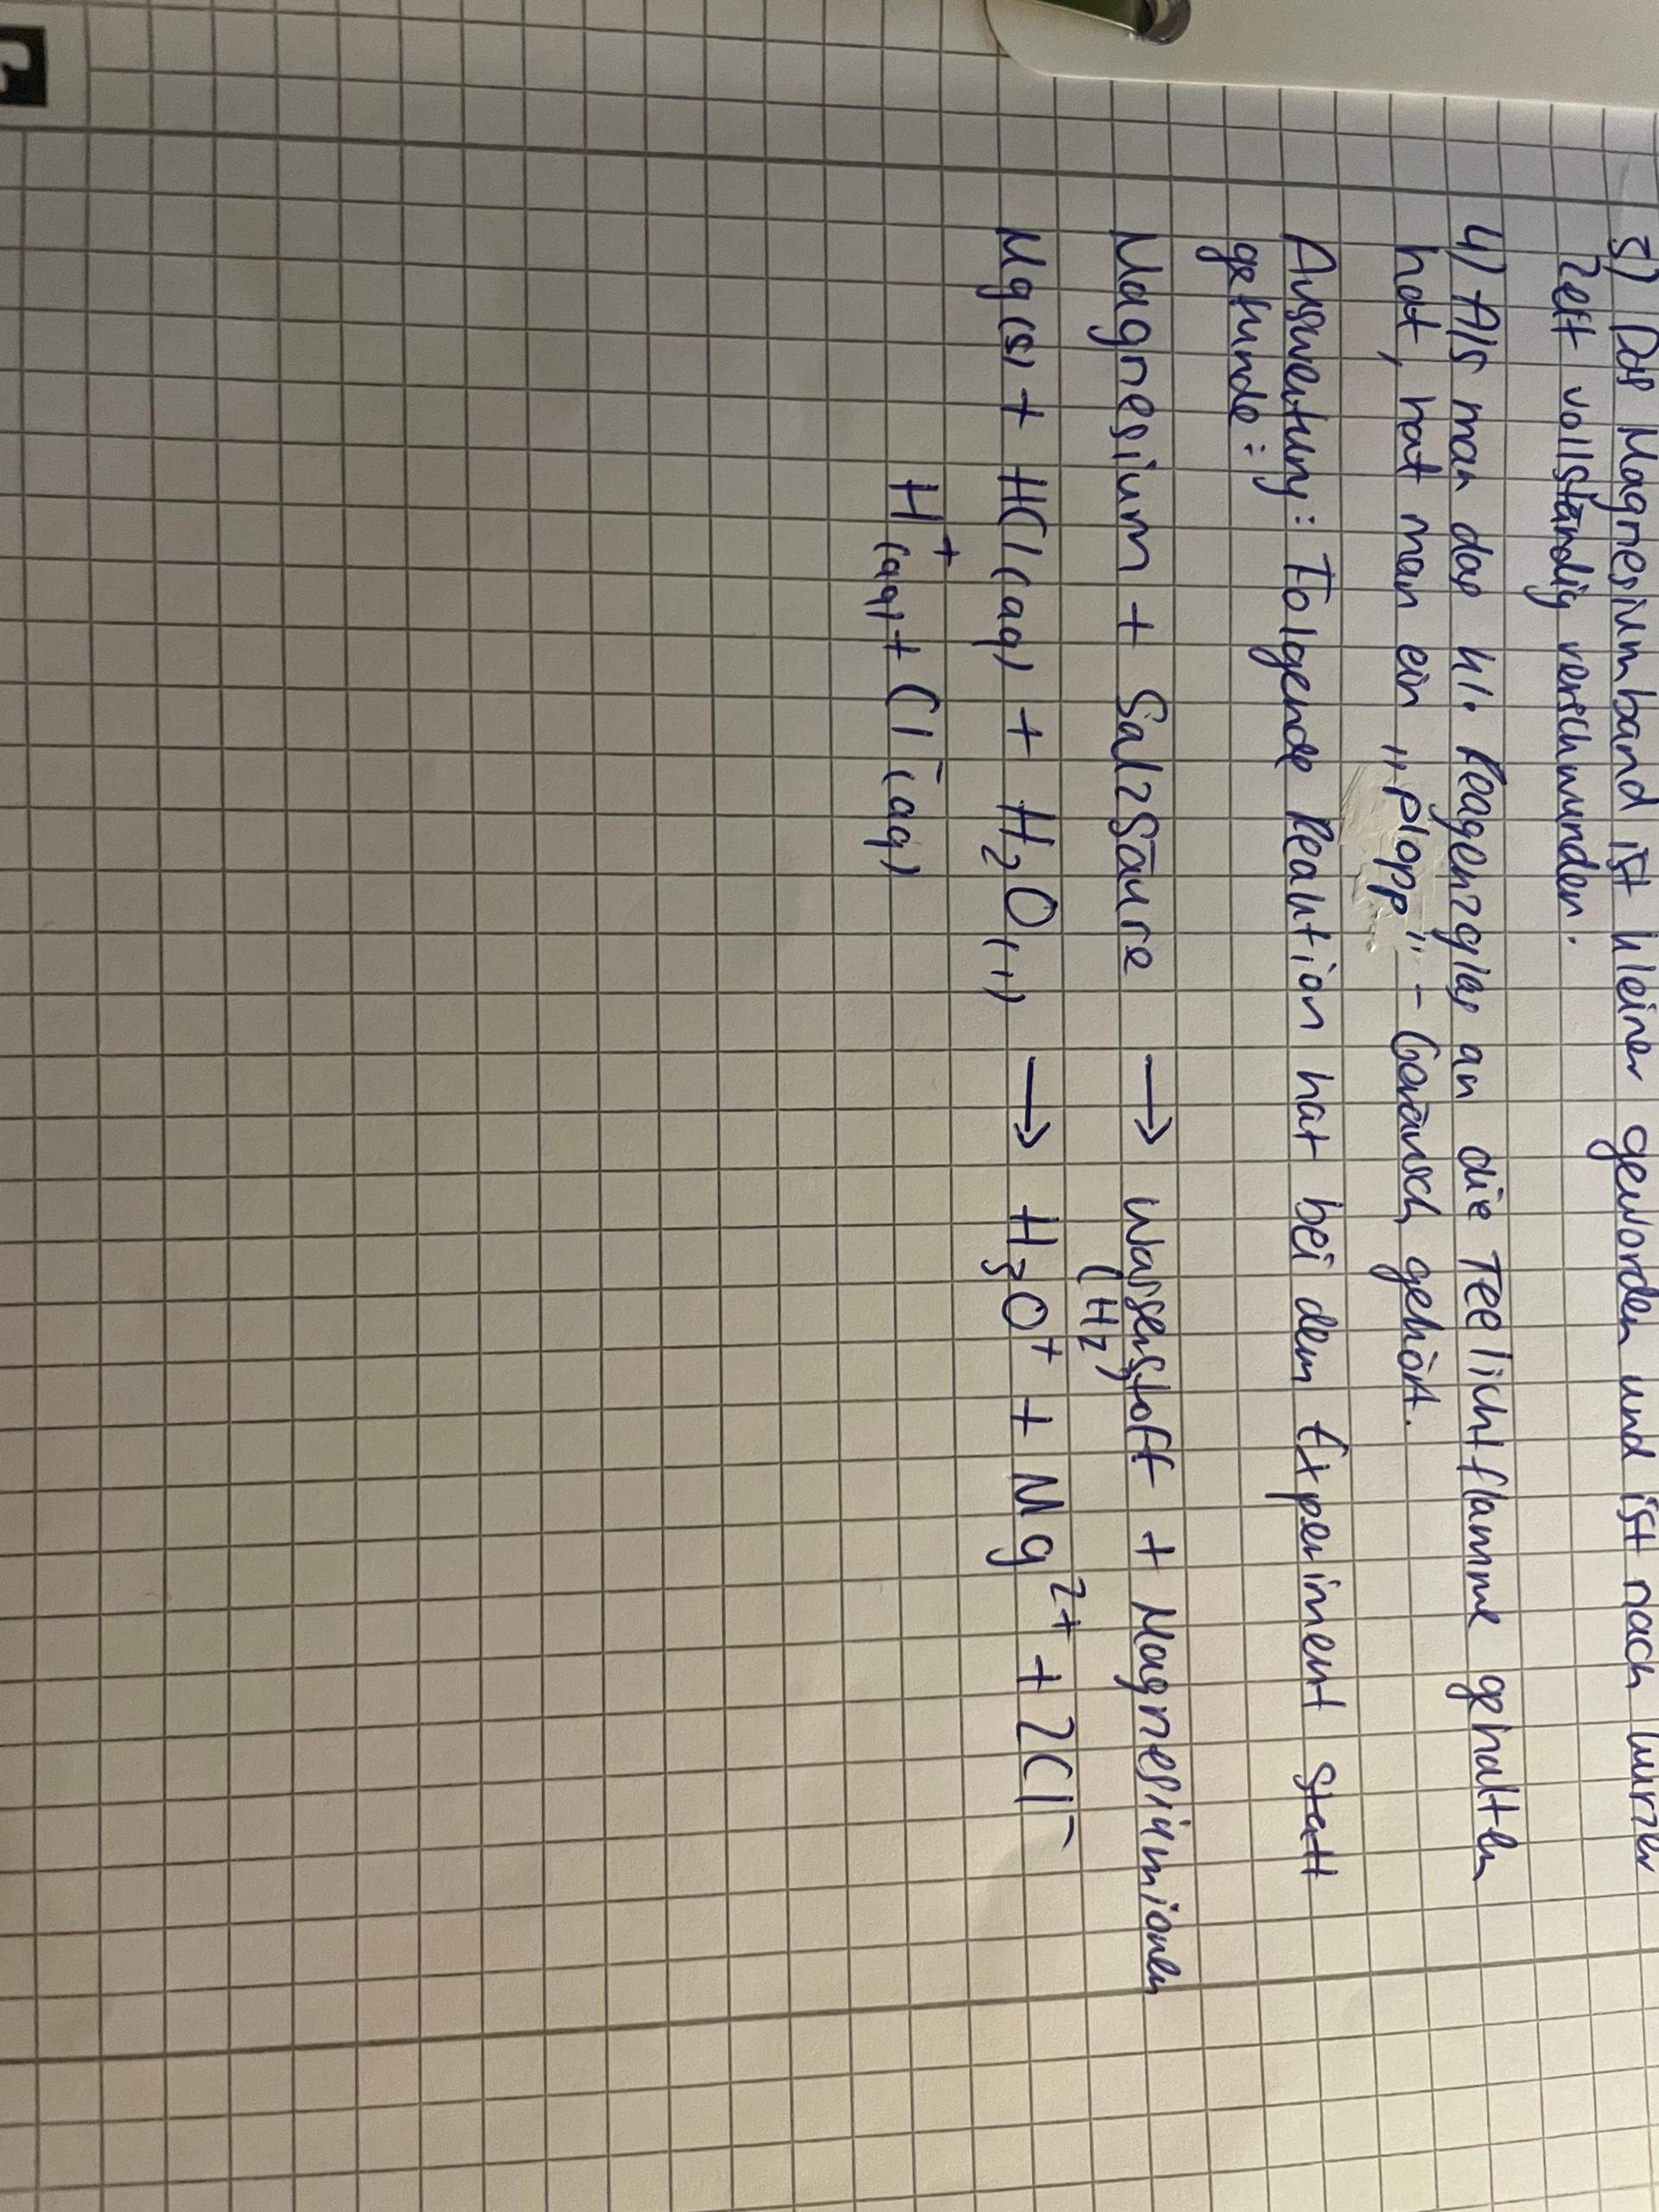 3) Das Magnesiumband ist kleiner geworden und ist nach kurzer
Zeit vollständig verschwunden.
4) Als man das kl. Reagenzglas an die Teelichtflamme gehalten
hat, hat man ein „plopp“-Geräusch gehört.
Auswertung: Folgende Reaktion hat bei dem Experiment statt
gefunde:
Magnesium + Salzsäure → Wasserstoff + Magnesiumionen
(H₂)
Mg(s) + HCl(aq) + H₂O(l) → H₃O⁺ + Mg²⁺ + 2Cl⁻
H⁺(aq) + Cl⁻(aq)